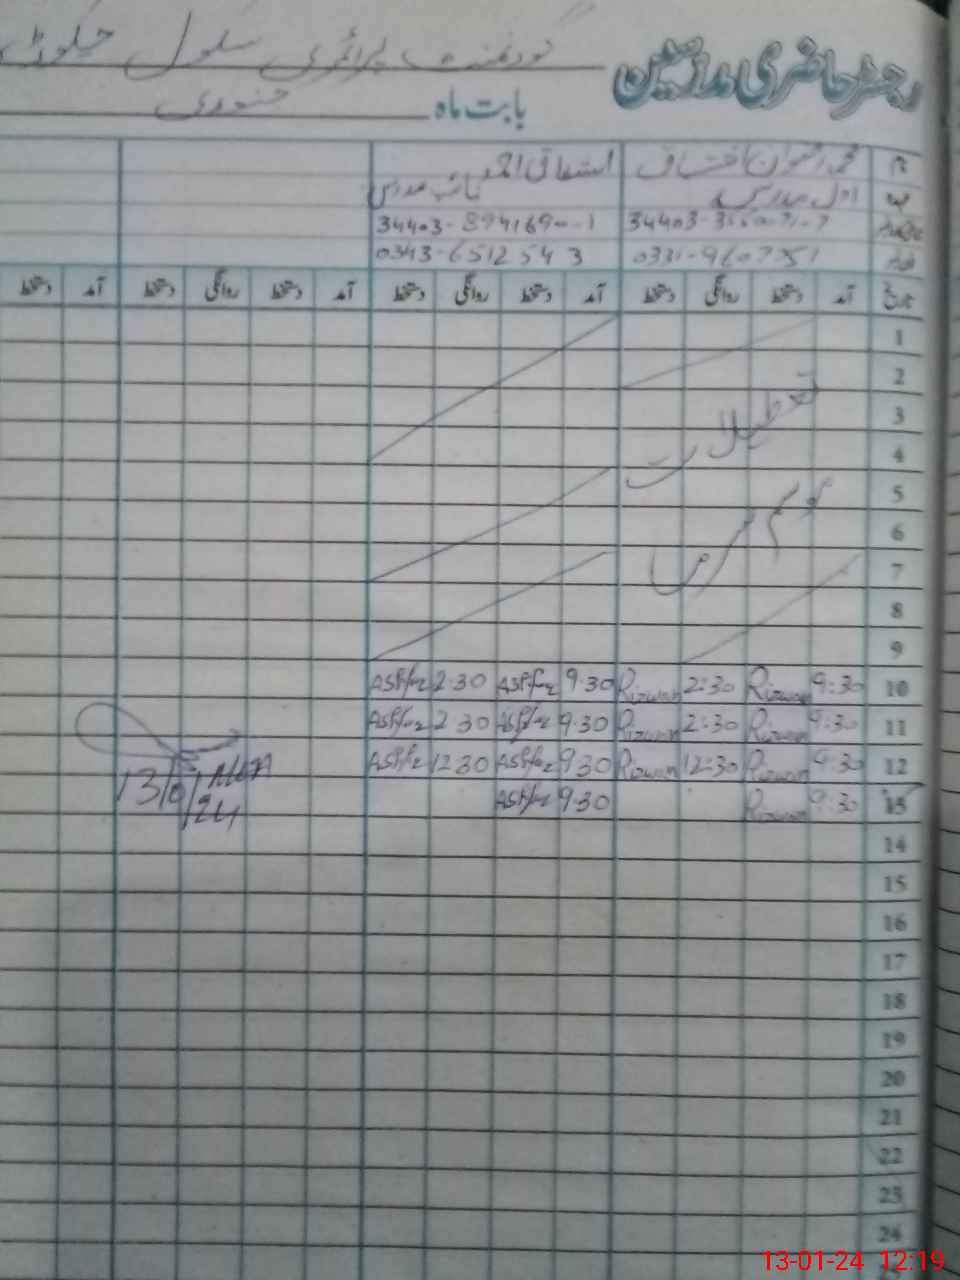 رجسٹر حاضری ملازمین گورنمنٹ پرائمری سکول
بابت ماہ جنوری
نام محمد رضوان اشتیاق اشفاق احمد
عہدہ اول مدرس نائب مدرس
34403-8941690-1
0343-6512543
تاریخ آمد دستخط روانگی دستخط آمد دستخط روانگی دستخط آمد دستخط روانگی دستخط آمد دستخط
1
2
3 تعطیلات
4
5 موسم سرما
6
7
8
9
10 9:30 Rizwan 2:30 Rizwan 9:30 Ashfaq 2:30 Ashfaq
11 9:30 Rizwan 2:30 Rizwan 9:30 Ashfaq 2:30 Ashfaq
12 9:30 Rizwan 12:30 Rizwan 9:30 Ashfaq 12:30 Ashfaq
13 9:30 Rizwan 9:30 Ashfaq
MEA
13/01/24
14
15
16
17
18
19
20
21
22
23
24
13-01-24 12:19